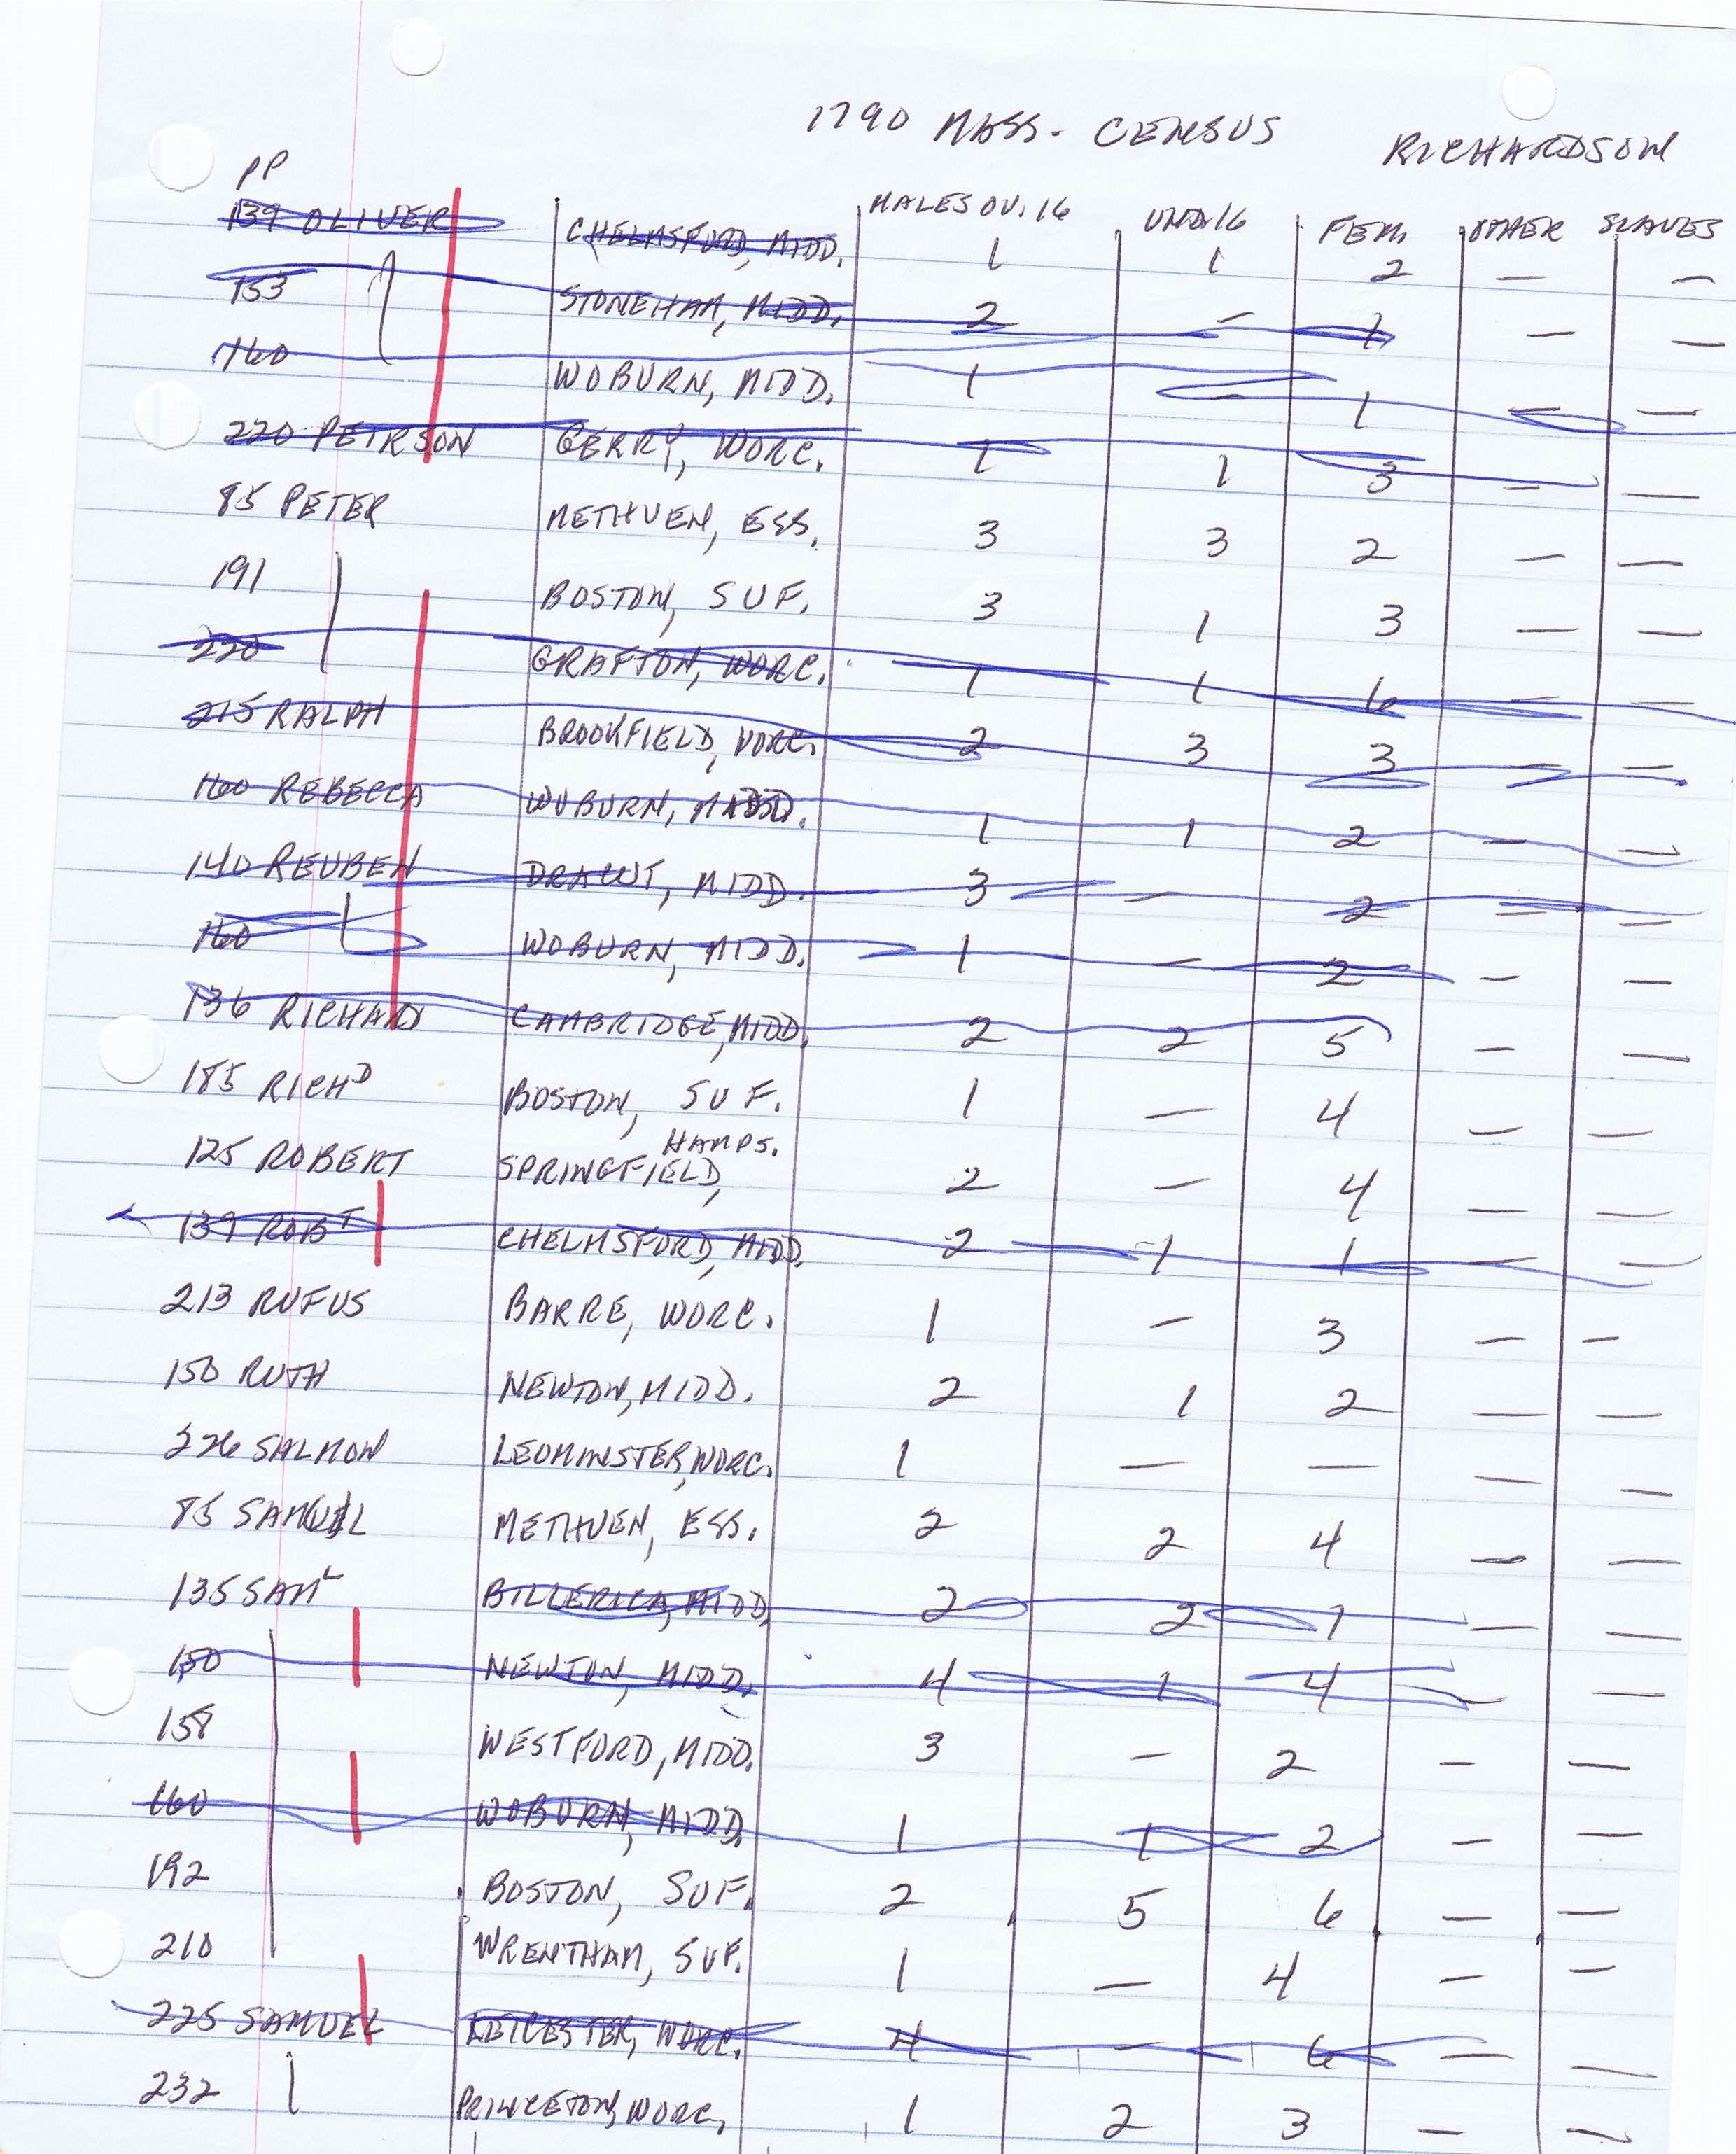 1790 MASS. CENSUS RICHARDSON
PP MALES OV. 16 UND 16 FEM. OTHER SLAVES
139 OLIVER CHELMSFORD, MIDD. 1 1 2 — —
153 STONEHAM, MIDD. 2 — 1 — —
160 WOBURN, MIDD. 1 — 1 — —
220 PETRSON GERRY, WORC. 1 1 3 — —
85 PETER METHUEN, ESS. 3 3 2 — —
191 BOSTON, SUF. 3 1 3 — —
220 GRAFTON, WORC. 1 1 6 — —
215 RALPH BROOKFIELD, WORC. 2 3 3 — —
160 REBECCA WOBURN, MIDD. 1 1 2 — —
140 REUBEN DRACUT, MIDD. 3 — 2 — —
160 WOBURN, MIDD. 1 — 2 — —
136 RICHARD CAMBRIDGE, MIDD. 2 2 5 — —
185 RICHD BOSTON, SUF. 1 — 4 — —
125 ROBERT SPRINGFIELD, HAMPS. 2 — 4 — —
139 ROBT CHELMSFORD, MIDD. 2 1 1 — —
213 RUFUS BARRE, WORC. 1 — 3 — —
150 RUTH NEWTON, MIDD. 2 1 2 — —
226 SALMON LEOMINSTER, WORC. 1 — — — —
85 SAMUEL METHUEN, ESS. 2 2 4 — —
135 SAML BILLERICA, MIDD. 2 2 1 — —
150 NEWTON, MIDD. 4 1 4 — —
158 WESTFORD, MIDD. 3 — 2 — —
160 WOBURN, MIDD. 1 1 2 — —
192 BOSTON, SUF. 2 5 6 — —
210 WRENTHAM, SUF. 1 — 4 — —
225 SAMUEL LEICESTER, WORC. 4 — 6 — —
232 PRINCETON, WORC. 1 2 3 — —